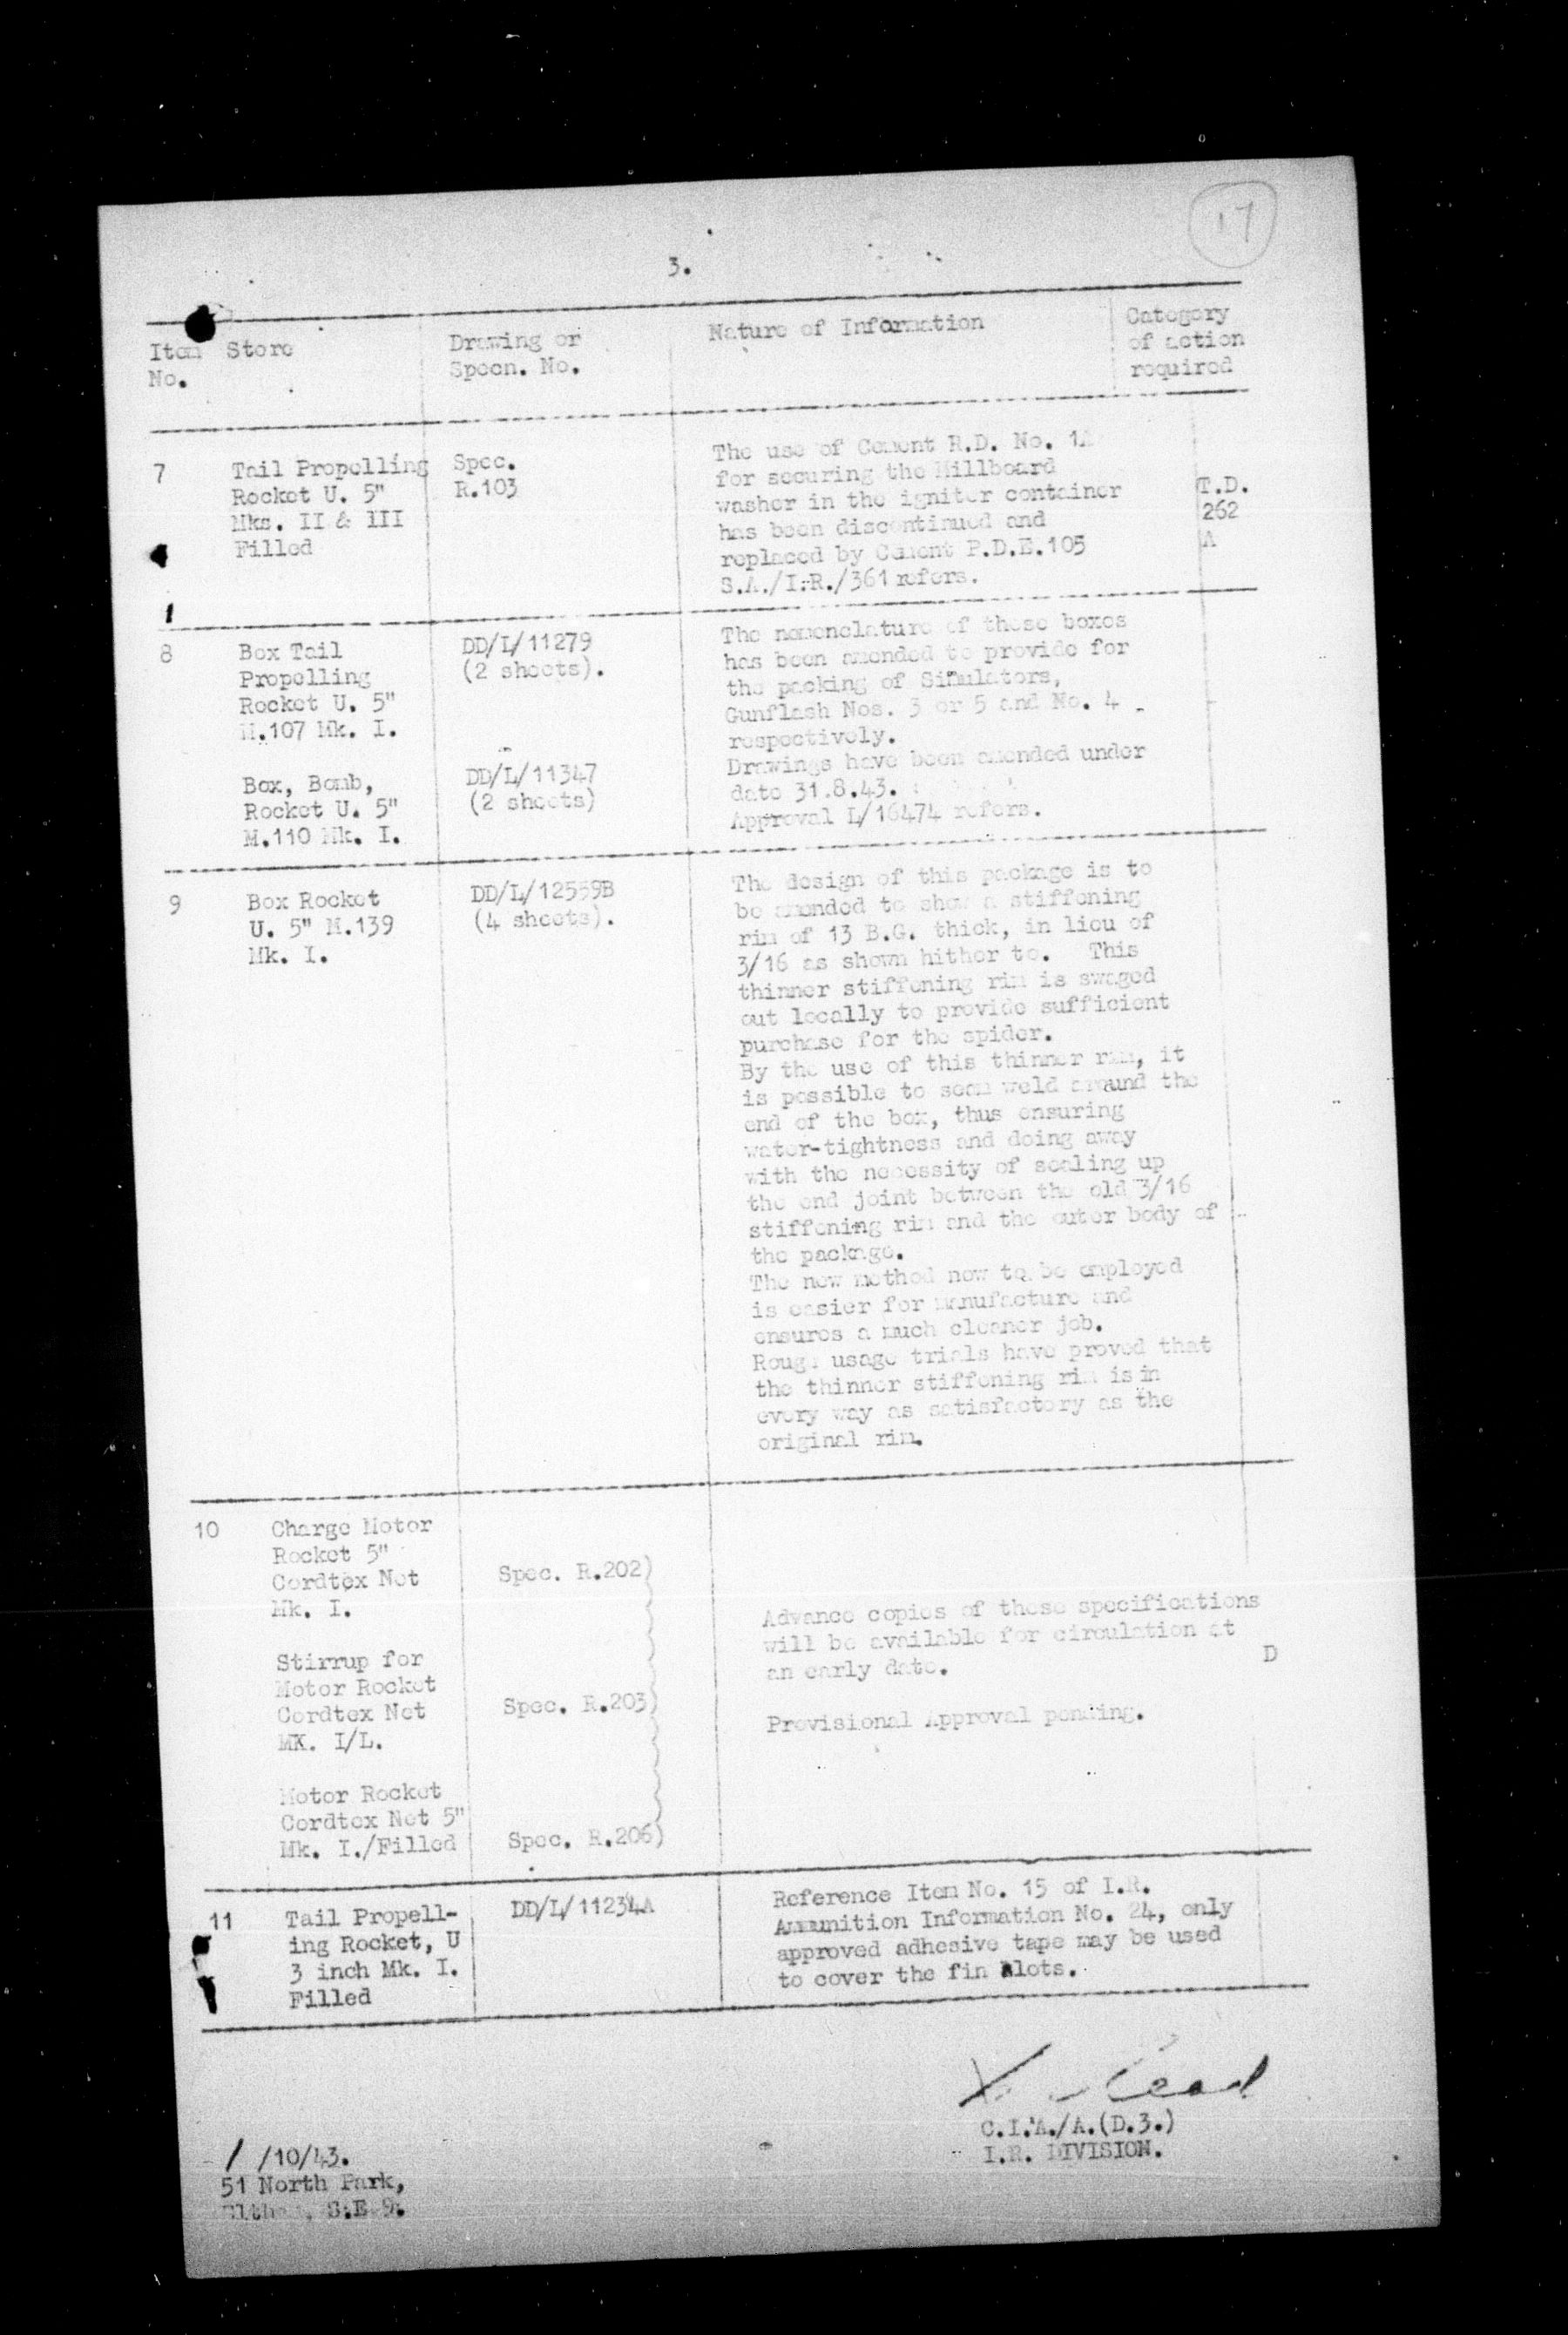 17
3.
Item Store
No.
Drawing or
Specn. No.
Nature of Information
Category
of action
required
7
Tail Propelling
Rocket U. 5"
Mks. II & III
Filled
Spec.
R.103
The use of Cement R.D. No. 1A
for securing the Millboard
washer in the igniter container
has been discontinued and
replaced by Cement P.D.E.105
S.A./I.R./361 refers.
T.D.
262
A
8
Box Tail
Propelling
Rocket U. 5"
M.107 Mk. I.
DD/L/11279
(2 sheets).
Box, Bomb,
Rocket U. 5"
M.110 Mk. I.
DD/L/11347
(2 sheets)
The nomenclature of these boxes
has been amended to provide for
the packing of Simulators,
Gunflash Nos. 3 or 5 and No. 4
respectively.
Drawings have been amended under
date 31.8.43.
Approval L/16474 refers.
9
Box Rocket
U. 5" M.139
Mk. I.
DD/L/12559B
(4 sheets).
The design of this package is to
be amended to show a stiffening
rim of 13 B.G. thick, in lieu of
3/16 as shown hither to. This
thinner stiffening rim is swaged
out locally to provide sufficient
purchase for the spider.
By the use of this thinner rim, it
is possible to seam weld around the
end of the box, thus ensuring
water-tightness and doing away
with the necessity of sealing up
the end joint between the old 3/16
stiffening rim and the outer body of
the package.
The new method now to be employed
is easier for manufacture and
ensures a much cleaner job.
Rough usage trials have proved that
the thinner stiffening rim is in
every way as satisfactory as the
original rim.
10
Charge Motor
Rocket 5"
Cordtex Net
Mk. I.
Spec. R.202)
Stirrup for
Motor Rocket
Cordtex Net
MK. I/L.
Spec. R.203)
Motor Rocket
Cordtex Net 5"
Mk. I./Filled
Spec. R.206)
Advance copies of these specifications
will be available for circulation at
an early date.
Provisional Approval pending.
D
11
Tail Propell-
ing Rocket, U
3 inch Mk. I.
Filled
DD/L/11234A
Reference Item No. 15 of I.R.
Ammunition Information No. 24, only
approved adhesive tape may be used
to cover the fin slots.
C.I.A./A.(D.3.)
I.R. DIVISION.
1 /10/43.
51 North Park,
Eltham, S.E 9.